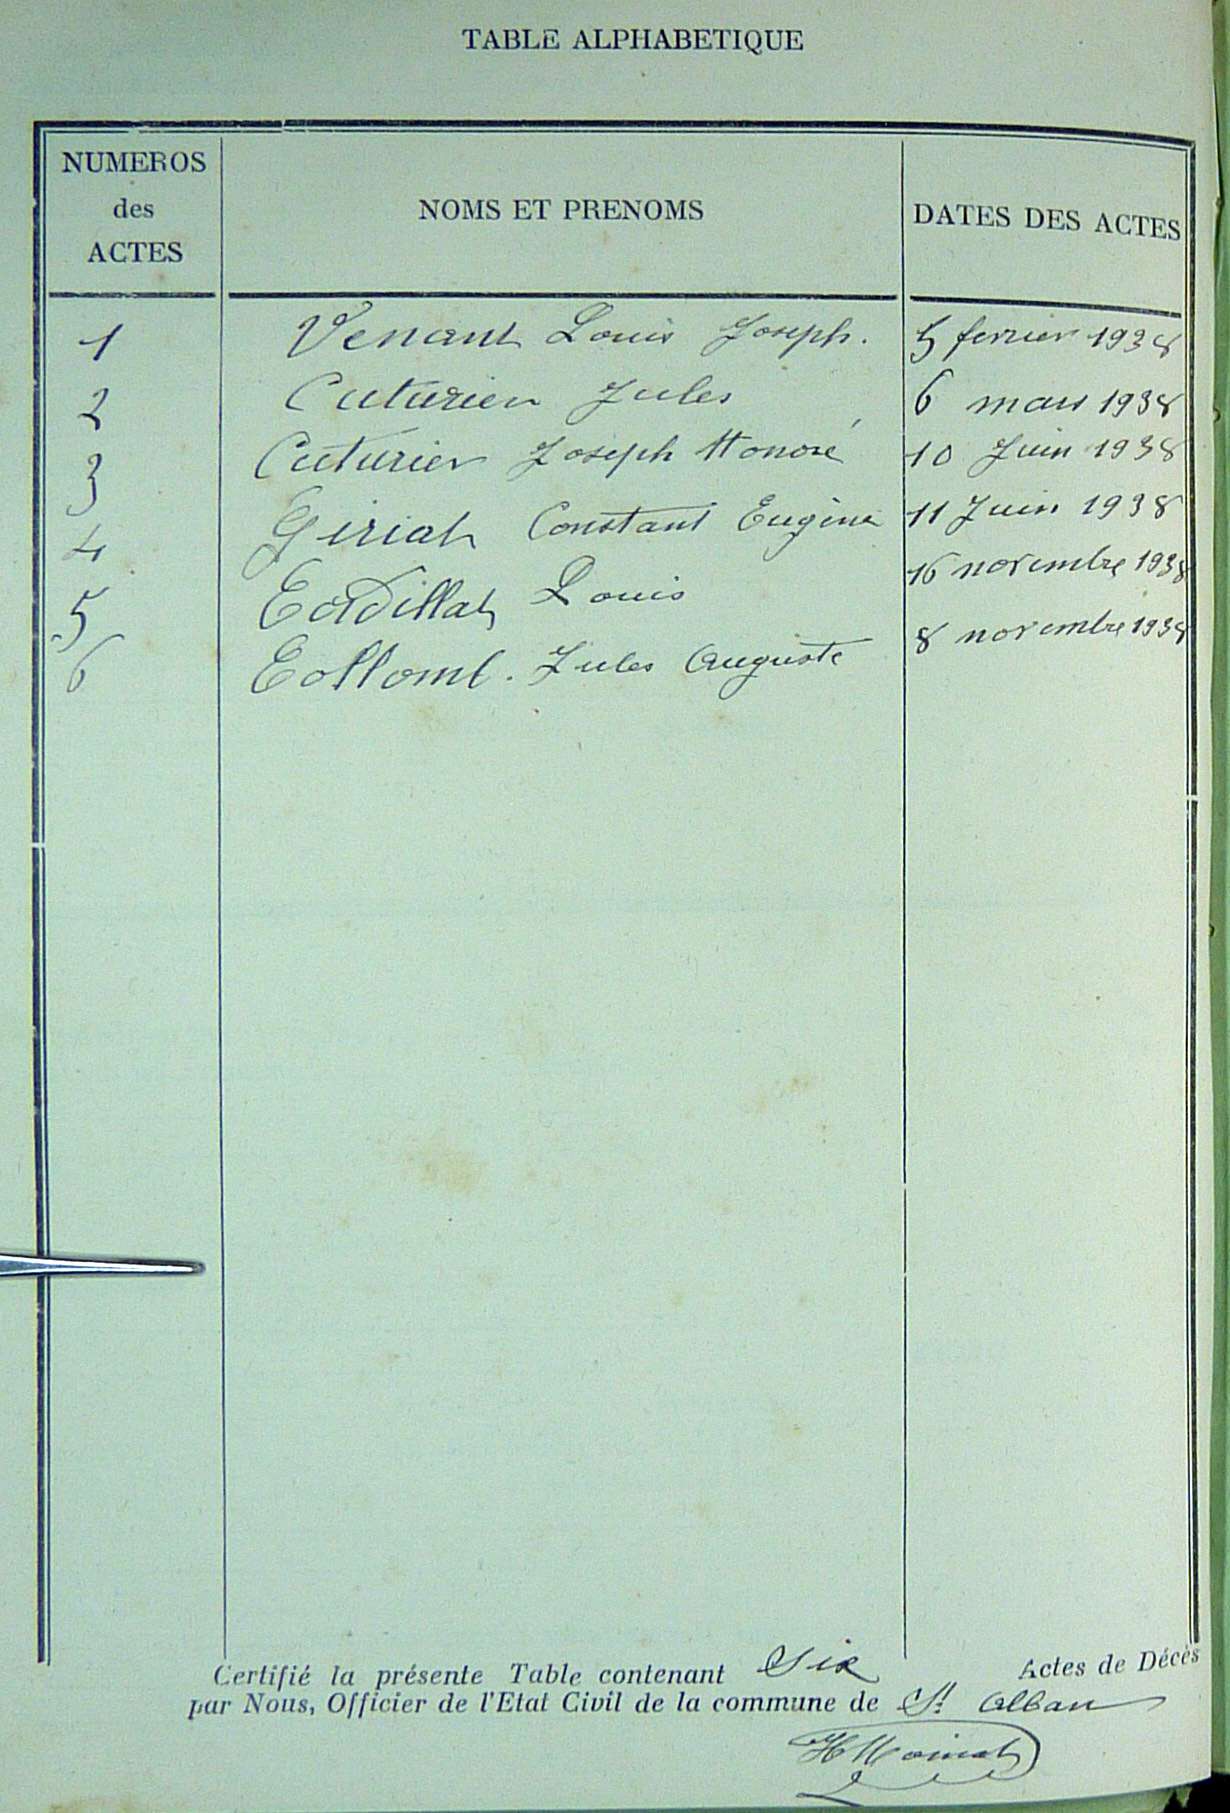 TABLE ALPHABETIQUE
NUMEROS des ACTES
NOMS ET PRENOMS
DATES DES ACTES
1 Venant Louis Joseph. 5 fevrier 1938
2 Cuturier Jules 6 mars 1938
3 Cuturier Joseph Honoré 10 Juin 1938
4 Giriat Constant Eugène 11 Juin 1938
5 Louis 16 novembre 1938
6 Collomb. Jules Auguste 8 novembre 1938
Certifié la présente Table contenant Six Actes de Décès
par Nous, Officier de l'Etat Civil de la commune de St Alban